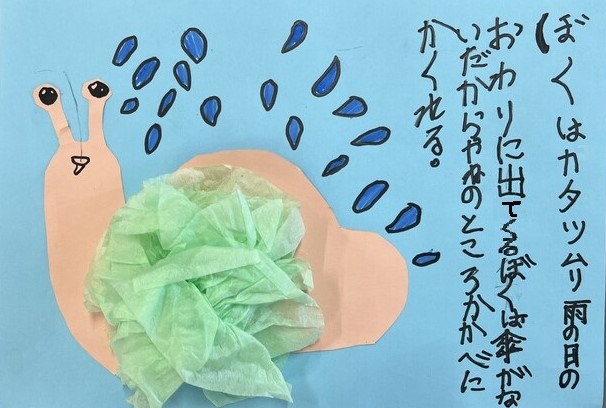 ぼくはカタツムリ雨の日の
おわりに出てくるぼくは傘がな
いだからやねのところかかべに
かくれる。